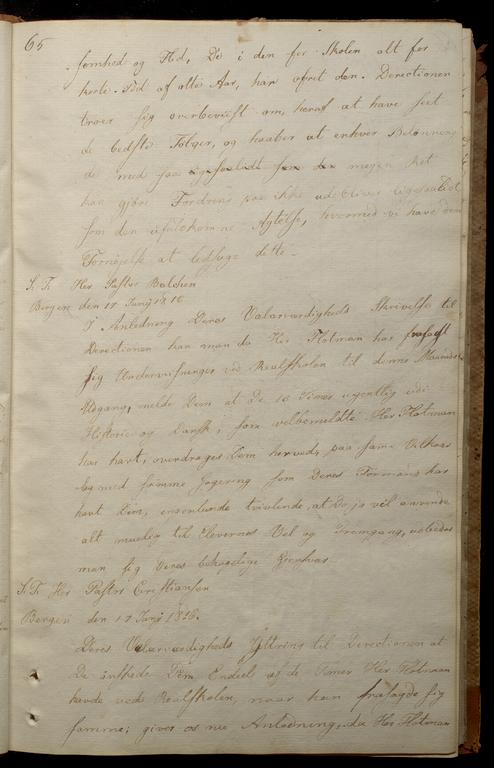 65
somhed og Flid, De i den for Skolen alt for
korte Tid af altes Aar, har ofret den. Directionen
troer sig overbeviist om, heraf at have seet
de bedste Følger, og haaber at enhver Belønning
de med saa megen Ret
kan gjøre Fordring paa ikke udebliver ligesaalidt
som den ufuldkomne Agtelse, hvormed vi have den
Fornøjelse at ledsage dette.
S. T. Her Pastor Balchen
Bergen den 17 Junij 1816
I Anledning Deres Velærværdigheds Skrivelse til
Directionen kan man da Her Flotman har frasagt
sig Underviisningen ved Realskolen til denne Maaneds
Udgang, melde Dem at De 10 Timer ugentlig udi
Historie og Dansk, som velbemeldte Her Flotman
har havt, overdrages Dem herved, paa samme Vilkaar
og med samme Gagering som Deres Formand har
havt Dem, ingenlunde tvivlende, at De jo vil anvende
alt mueligt til Elevernes Vel og Fremgang, udbeder
man sig Deres behagelige Giensvar
S. T. Her Pastor Christiansen
Bergen den 17 Junij 1816.
Deres Velærværdigheds Yttring til Directionen at
De ønskede Dem Endeel af de Timer Her Flotman
havde ved Realskolen, naar han frasagde sig
samme; giver os nu Anledning, da Her Flotman